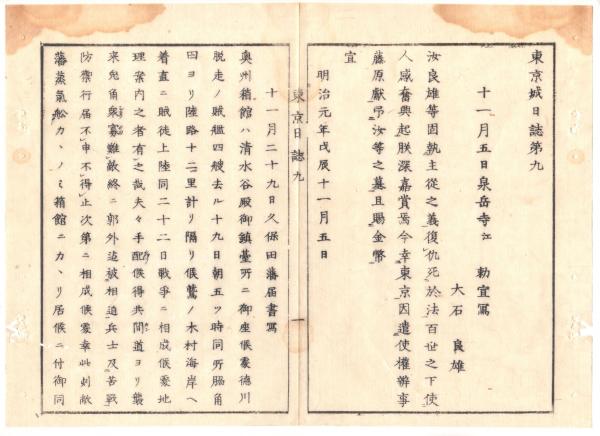 東京城日誌第九
十一月五日泉岳寺江 勅宣寫
大石 良雄
汝良雄等固執主從之義復仇死於法百世之下使
人感奮興起朕深嘉賞焉今幸東京因遣使權辨事
藤原獻弔汝等之墓且賜金幣
宣
明治元年戊辰十一月五日
東京日誌九
一
十一月二十九日久保田藩届書寫
奥州箱館ハ清水谷殿御鎮臺所ニ御座候處徳川
脱走ノ賊艦四艘去ル十九日朝五ツ時同所脇角
日ヨリ陸路十二里計リ隔リ候鷲ノ木村海岸ヘ
着直ニ賊徒上陸同二十二日戰爭ニ相成候處地
理案内之者有之哉夫々手配候得共間道ヨリ襲
来兎角衆寡難敵終ニ郭外迄被相迫兵士及苦戰
防禦行届不申不得止次第ニ相成候處幸此刻敵
藩蒸氣舩カヽノミ箱館ニカヽリ居候ニ付御同